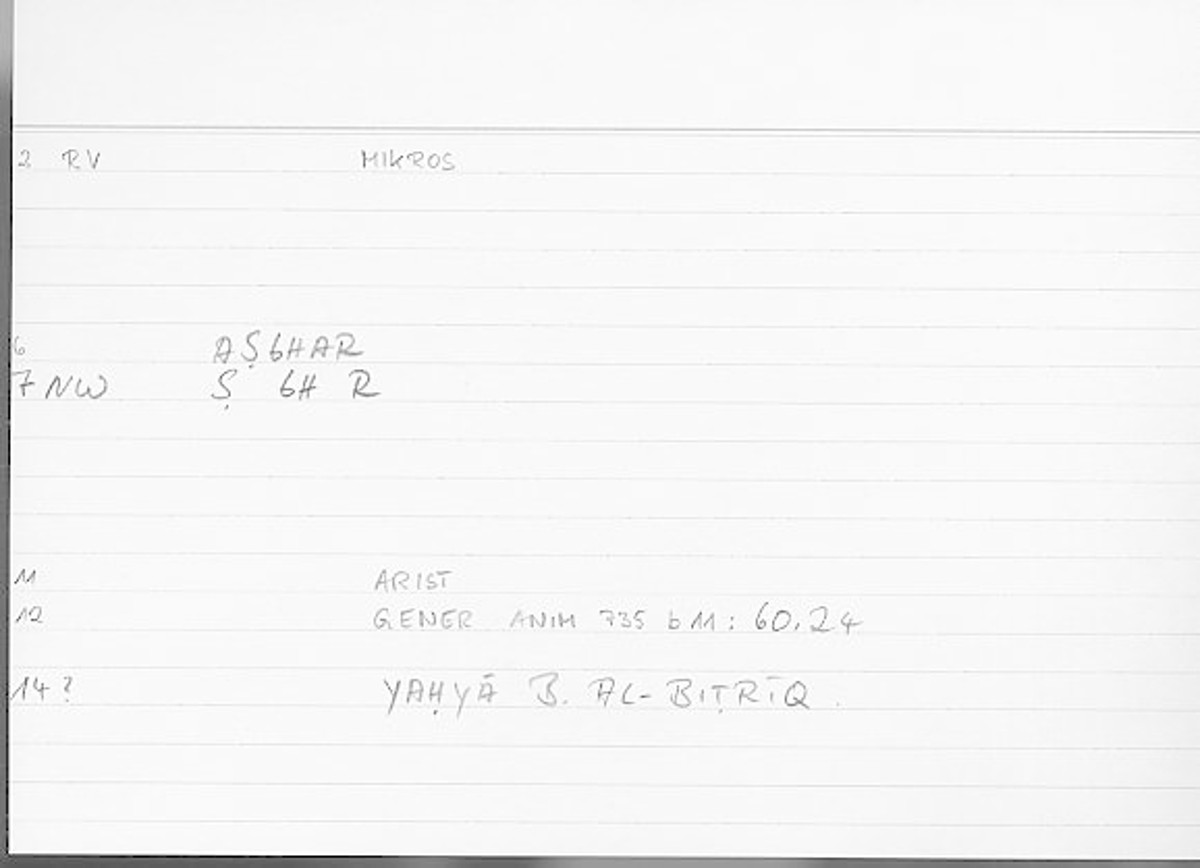 2 RV MIKROS
6 AṢGHAR
7 NW Ṣ GH R
11 ARIST
12 GENER ANIM 735 b 11: 60.24
14? YAḤYĀ B. AL-BIṬRĪQ.